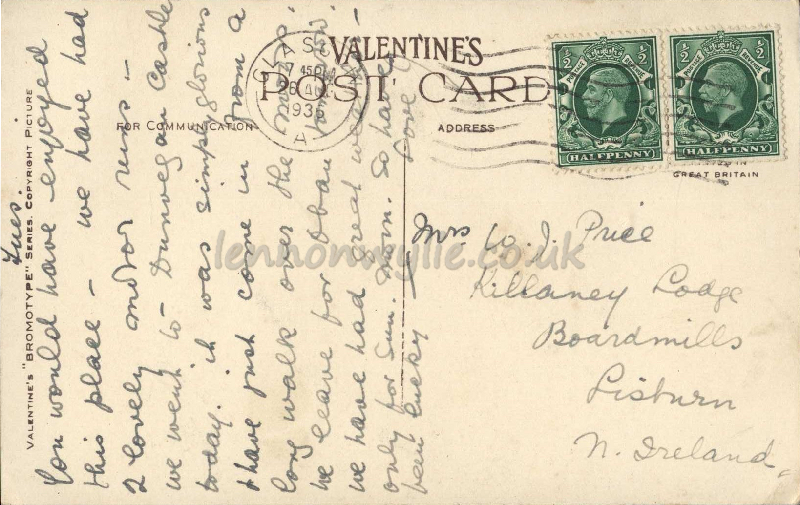 VALENTINE'S
POST CARD
FOR COMMUNICATION
ADDRESS
GREAT BRITAIN
VALENTINE'S "BROMOTYPE" SERIES. COPYRIGHT PICTURE
GLASGOW
7 45PM
1936
A
1/2 1/2
POSTAGE REVENUE
HALFPENNY
1/2 1/2
POSTAGE REVENUE
HALFPENNY
Tues.
You would have enjoyed
this place – we have had
2 lovely motor runs –
we went to Dunvegan Castle
today. it was simply glorious
& have just come in from a
long walk over the moors.
We leave for Oban tomorrow.
we have had great weather –
only for Sun. morn. So have
been lucky Love
Mrs W. J. Price
Killaney Lodge
Boardmills
Lisburn
N. Ireland.
lennonwylie.co.uk